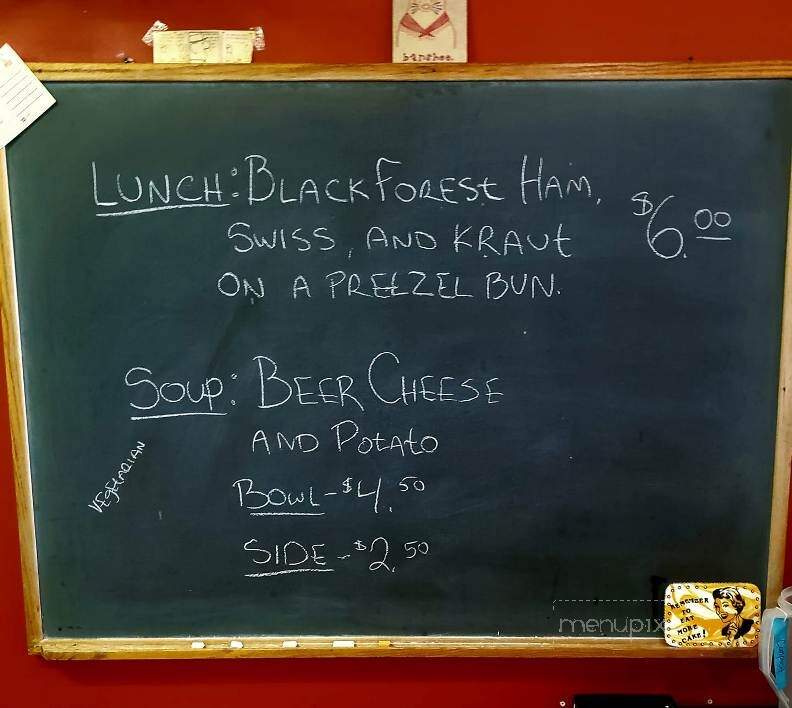 banshee.
LUNCH: BLACK FOREST HAM, $6.00
SWISS, AND KRAUT
ON A PRETZEL BUN.
SOUP: BEER CHEESE
AND POTATO
VEGETARIAN
BOWL - $4.50
SIDE - $2.50
menupix
REMEMBER
TO
EAT
MORE
CAKE!